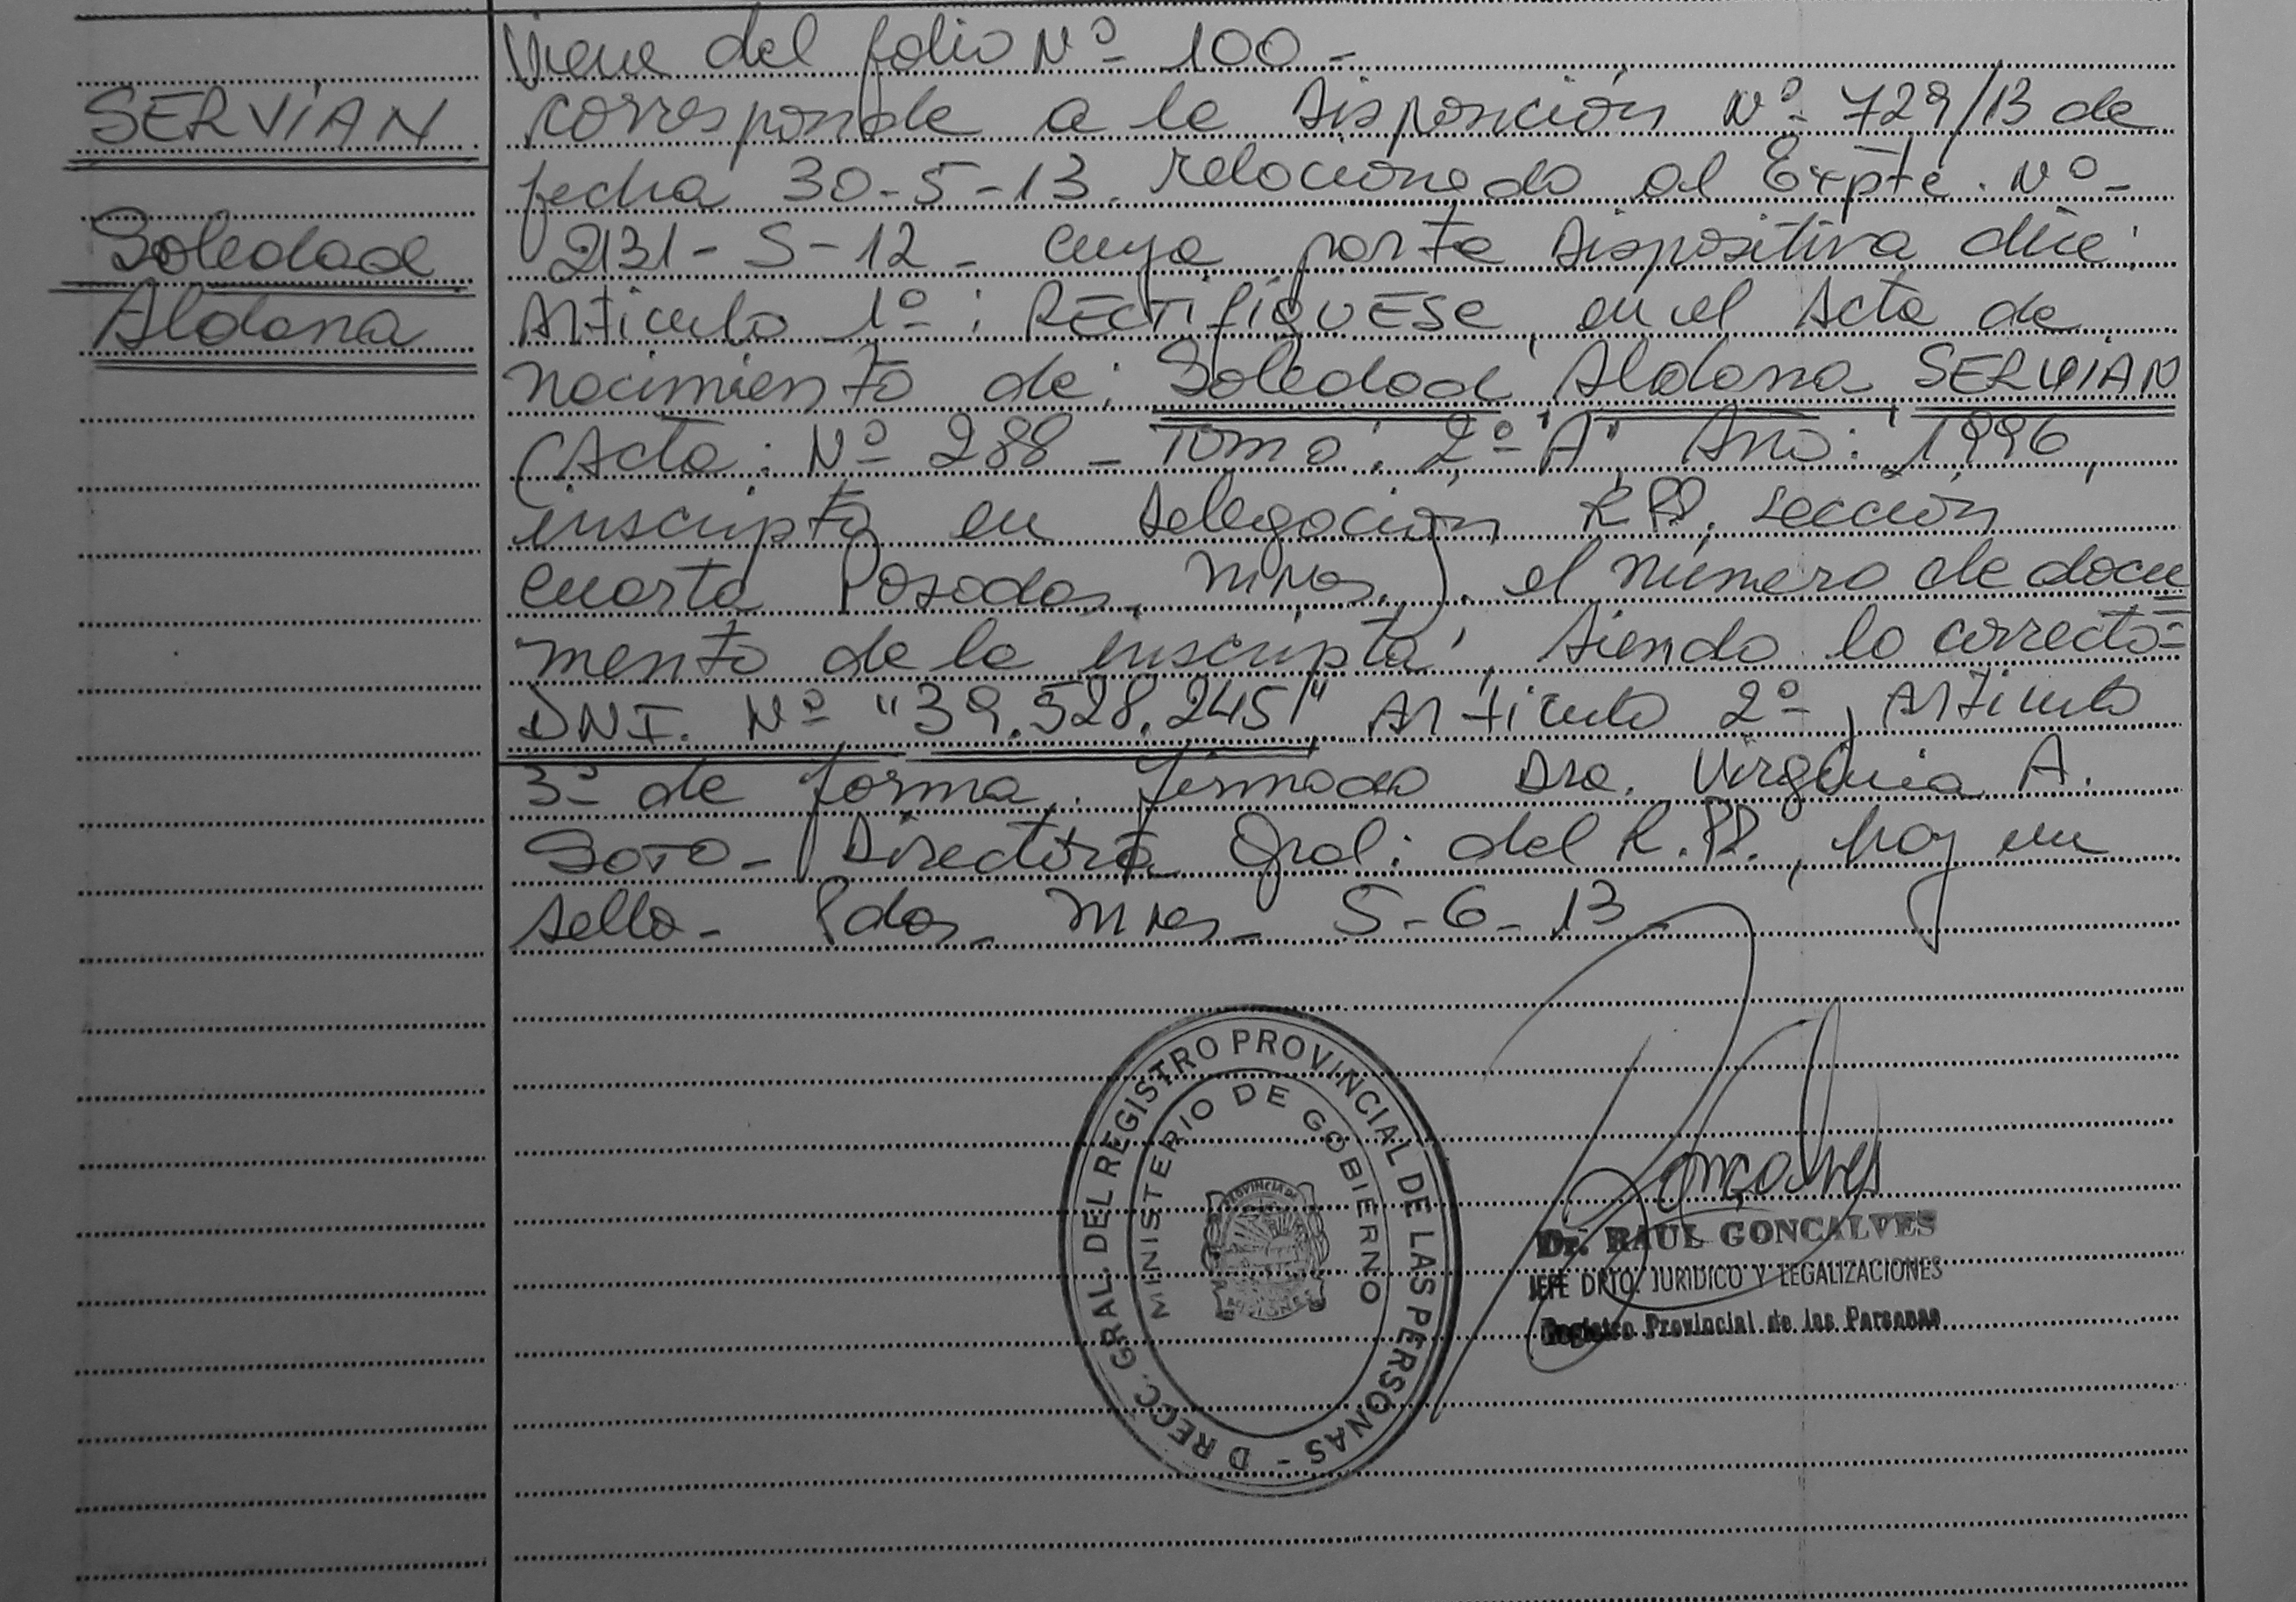 SERVIAN
Soledad
Aldana
Viene del folio Nº 100 -
corresponde a la Disposición Nº 729/13 de
fecha 30-5-13. relacionado al Expte. Nº -
2131-S-12 - cuya parte dispositiva dice:
Articulo 1º: RECTIFIQUESE, en el Acta de
nacimiento de: Soledad Aldana SERVIAN
(Acta: Nº 288 - Tomo: 2º "A" Año: 1996,
inscripta en Delegación R.P.P. sección
cuarta Posadas, Mnes.). el número de docu
mento de la inscripta, siendo lo correcto =
DNI. Nº "39.528.245" Articulo 2º, Articulo
3º de forma. firmado Dra. Virginia A.
Soto - Directora Gral. del R.P.P., hay un
sello - Pdas. Mnes - 5-6-13
DIRECC. GRAL. DEL REGISTRO PROVINCIAL DE LAS PERSONAS -
MINISTERIO DE GOBIERNO
PROVINCIA DE
MISIONES
Gonçalves
Dr. RAUL GONCALVES
JEFE DPTO. JURIDICO Y LEGALIZACIONES
Registro Provincial de las Personas